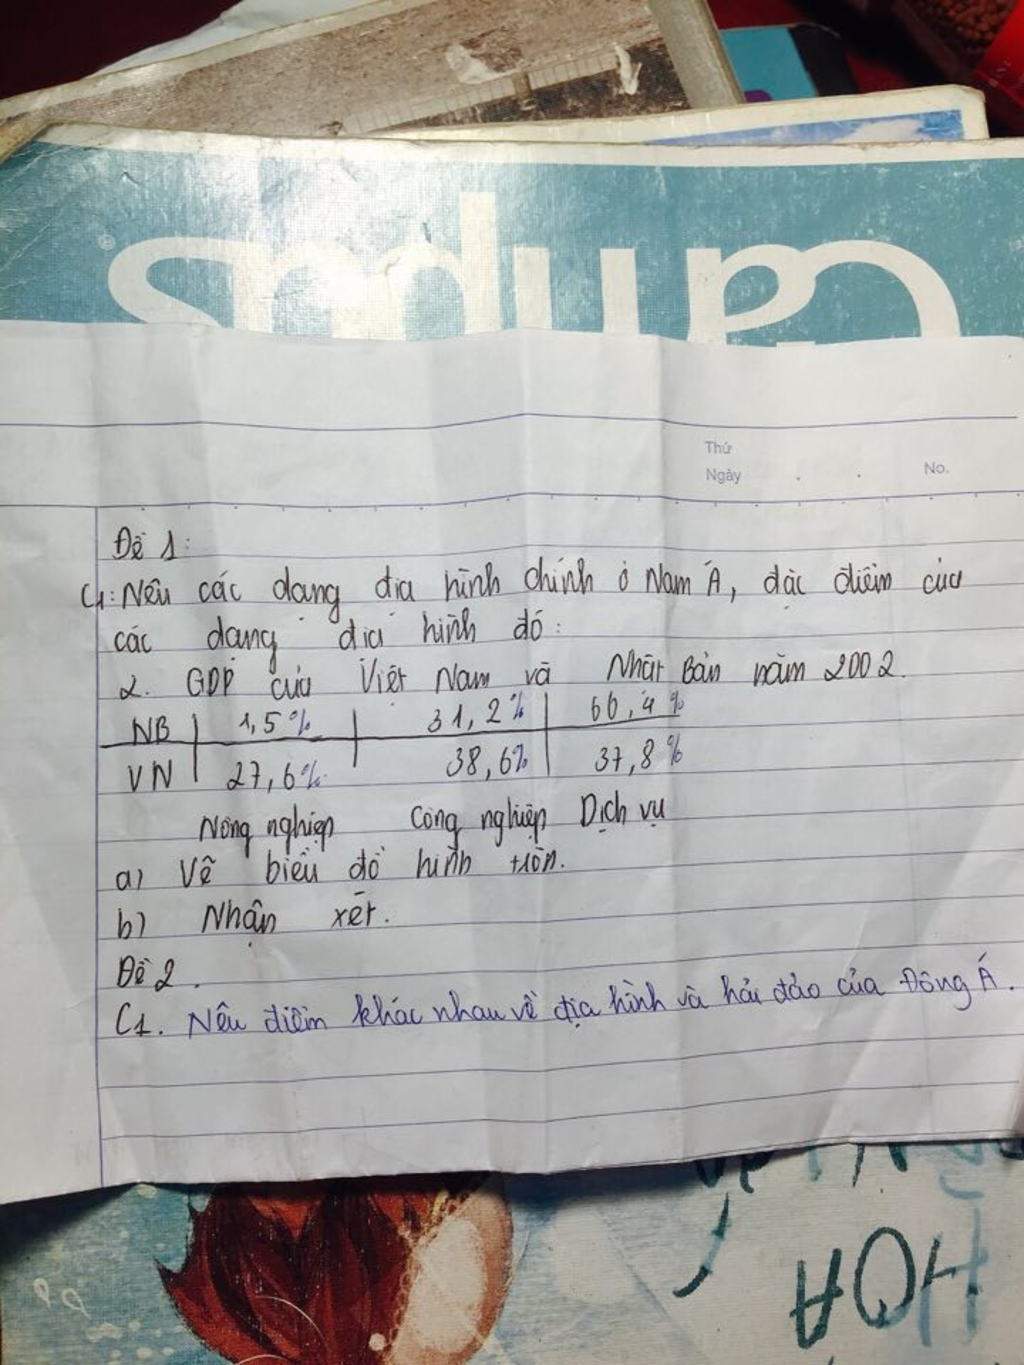 Campus
Thứ
Ngày . . No.
Đề 1:
C1: Nêu các dạng địa hình chính ở Nam Á, đặc điểm của
các dạng địa hình đó:
2. GDP của Việt Nam và Nhật Bản năm 2002.
NB 1,5% 31,2% 66,4%
VN 27,6% 38,6% 37,8%
Nông nghiệp Công nghiệp Dịch vụ
a) Vẽ biểu đồ hình tròn.
b) Nhận xét.
Đề 2.
C1. Nêu điểm khác nhau về địa hình và hải đảo của Đông Á.
HOA